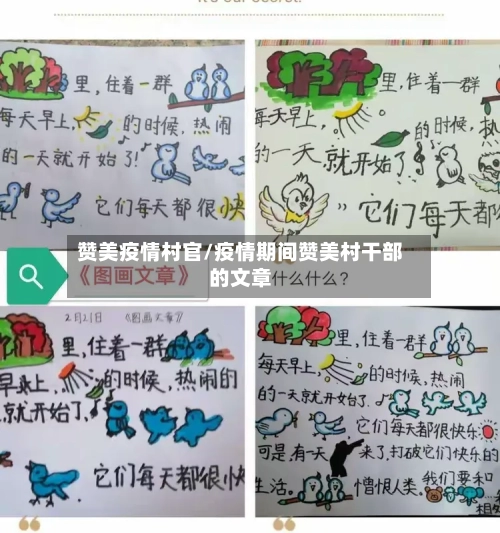 It's our secret!
里，住着一群
每天早上，的时候，热闹
的一天就开始了！
它们每天都很快
里，住着一群
每天早上，的时候，热
的一天，就开始了
它们每天都
赞美疫情村官/疫情期间赞美村干部
的文章
《图画文章》
什么什么？
2月21日 《图画文章》
里，住着一群
早上，的时候，热闹的
就开始了，
它们每天都很快
里，住着一群
每天早上，的时候，热闹
的一天就开始了。
它们每天都很快乐。
可是，有一天来了，打破它们快乐的
生活。憎恨人类。我们要和
相处